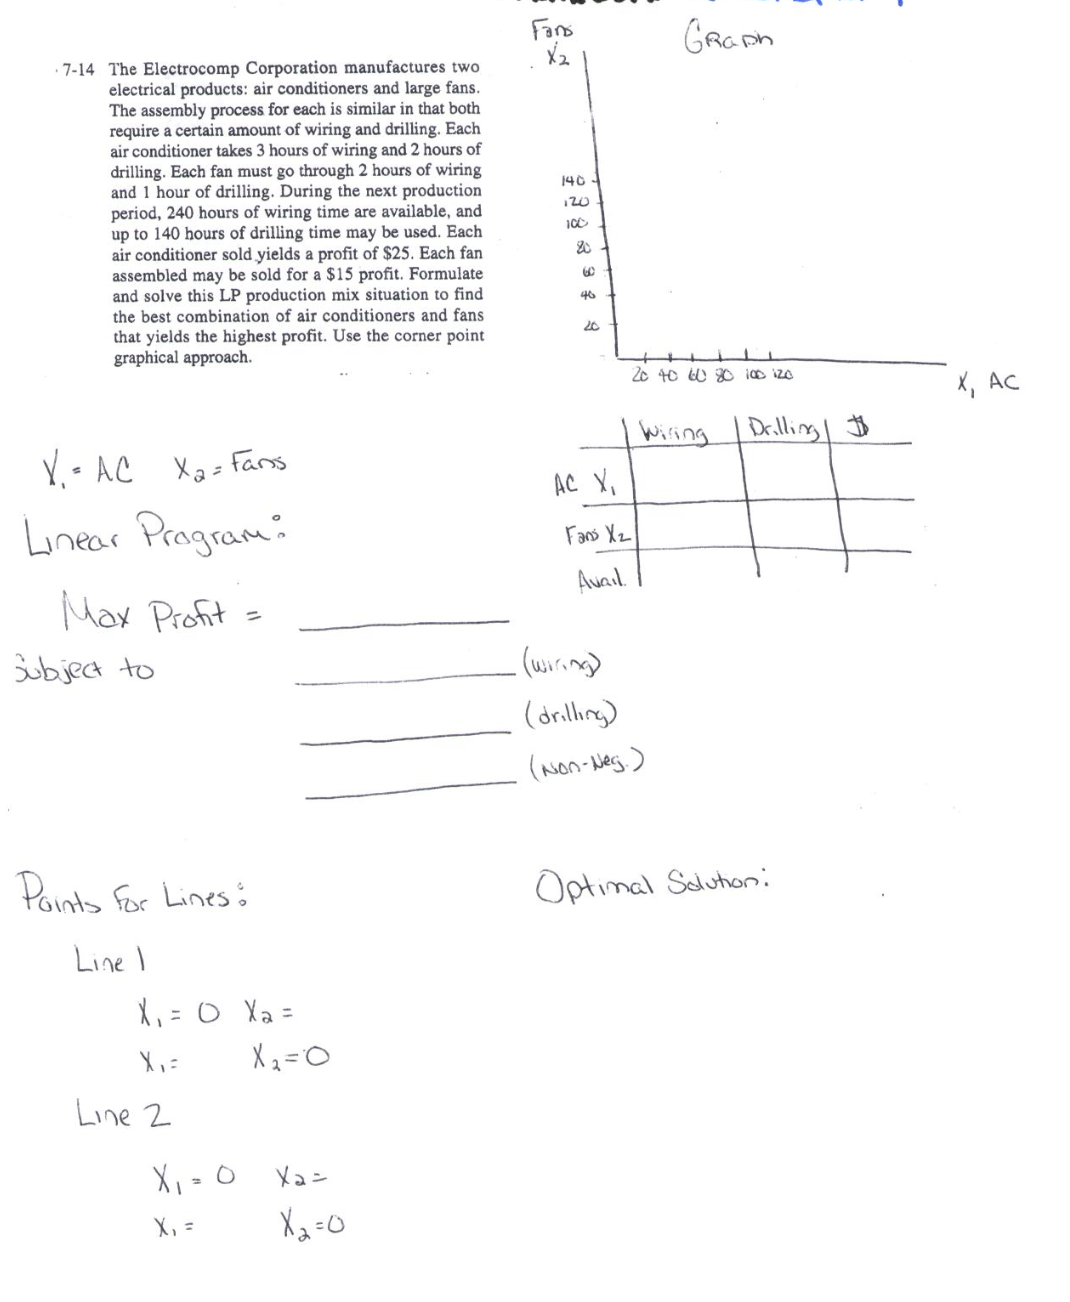 Fans
X2
GRAPH
7-14 The Electrocomp Corporation manufactures two
electrical products: air conditioners and large fans.
The assembly process for each is similar in that both
require a certain amount of wiring and drilling. Each
air conditioner takes 3 hours of wiring and 2 hours of
drilling. Each fan must go through 2 hours of wiring
and 1 hour of drilling. During the next production
period, 240 hours of wiring time are available, and
up to 140 hours of drilling time may be used. Each
air conditioner sold yields a profit of $25. Each fan
assembled may be sold for a $15 profit. Formulate
and solve this LP production mix situation to find
the best combination of air conditioners and fans
that yields the highest profit. Use the corner point
graphical approach.
140
120
100
80
60
40
20
20 40 60 80 100 120
X1 AC
Wiring Drilling $
AC X1
Fans X2
Avail.
X1 = AC X2 = Fans
Linear Program:
Max Profit =
Subject to
(wiring)
(drilling)
(Non-Neg.)
Points For Lines:
Optimal Solution:
Line 1
X1 = 0 X2 =
X1 = X2 = 0
Line 2
X1 = 0 X2 =
X1 = X2 = 0